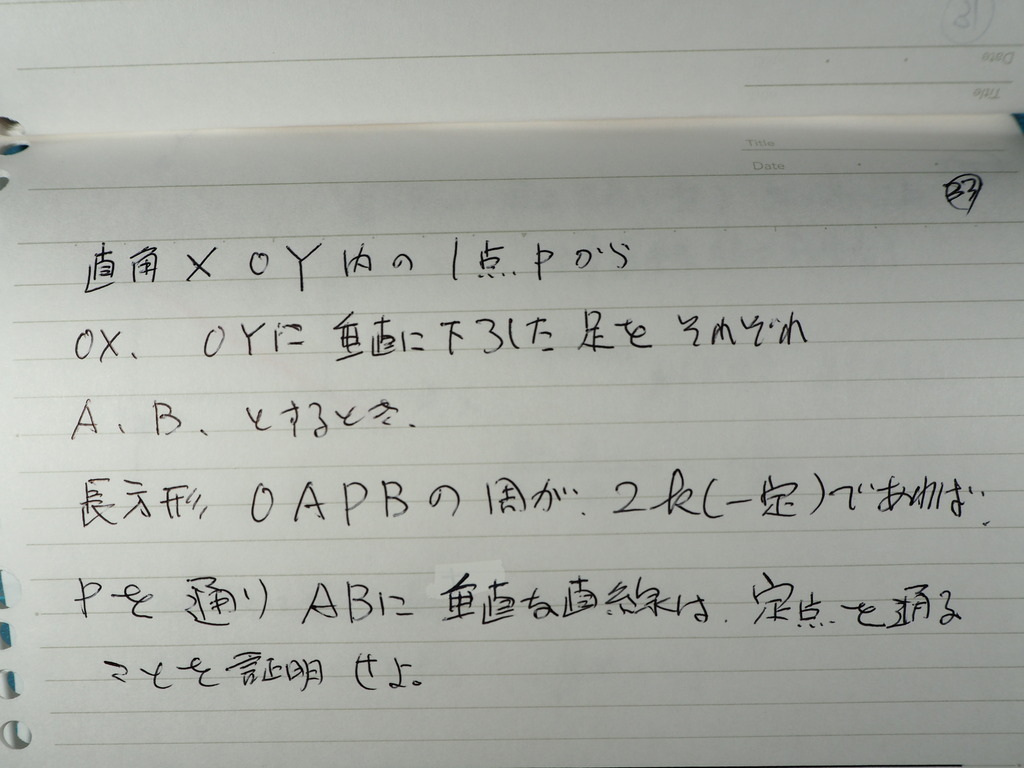 Date
Title
Title
Date
直角XOY内の1点Pから
OX、OYに垂直に下ろした足をそれぞれ
A、B、とするとき、
長方形OAPBの周が、2k(一定)であれば、
Pを通りABに垂直な直線は、定点を通る
ことを証明せよ。